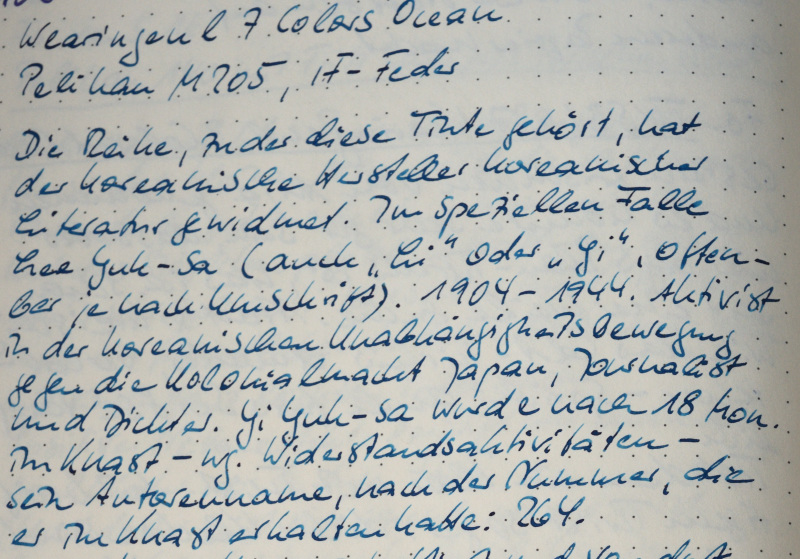 Wearingeul 7 Colors Ocean
Pelikan M205, IF-Feder
Die Reihe, zu der diese Tinte gehört, hat
der koreanische Hersteller koreanischer
Literatur gewidmet. Im speziellen Falle
Lee Yuk-Sa (auch „Li" oder „Yi", offen-
bar je nach Umschrift). 1904 - 1944. Aktivist
in der koreanischen Unabhängigkeitsbewegung
gegen die Kolonialmacht Japan, Journalist
und Dichter. Yi Yuk-Sa wurde nach 18 Mon.
im Knast - wg. Widerstandsaktivitäten -
sein Autorenname, nach der Nummer, die
er im Knast erhalten hatte: 264.